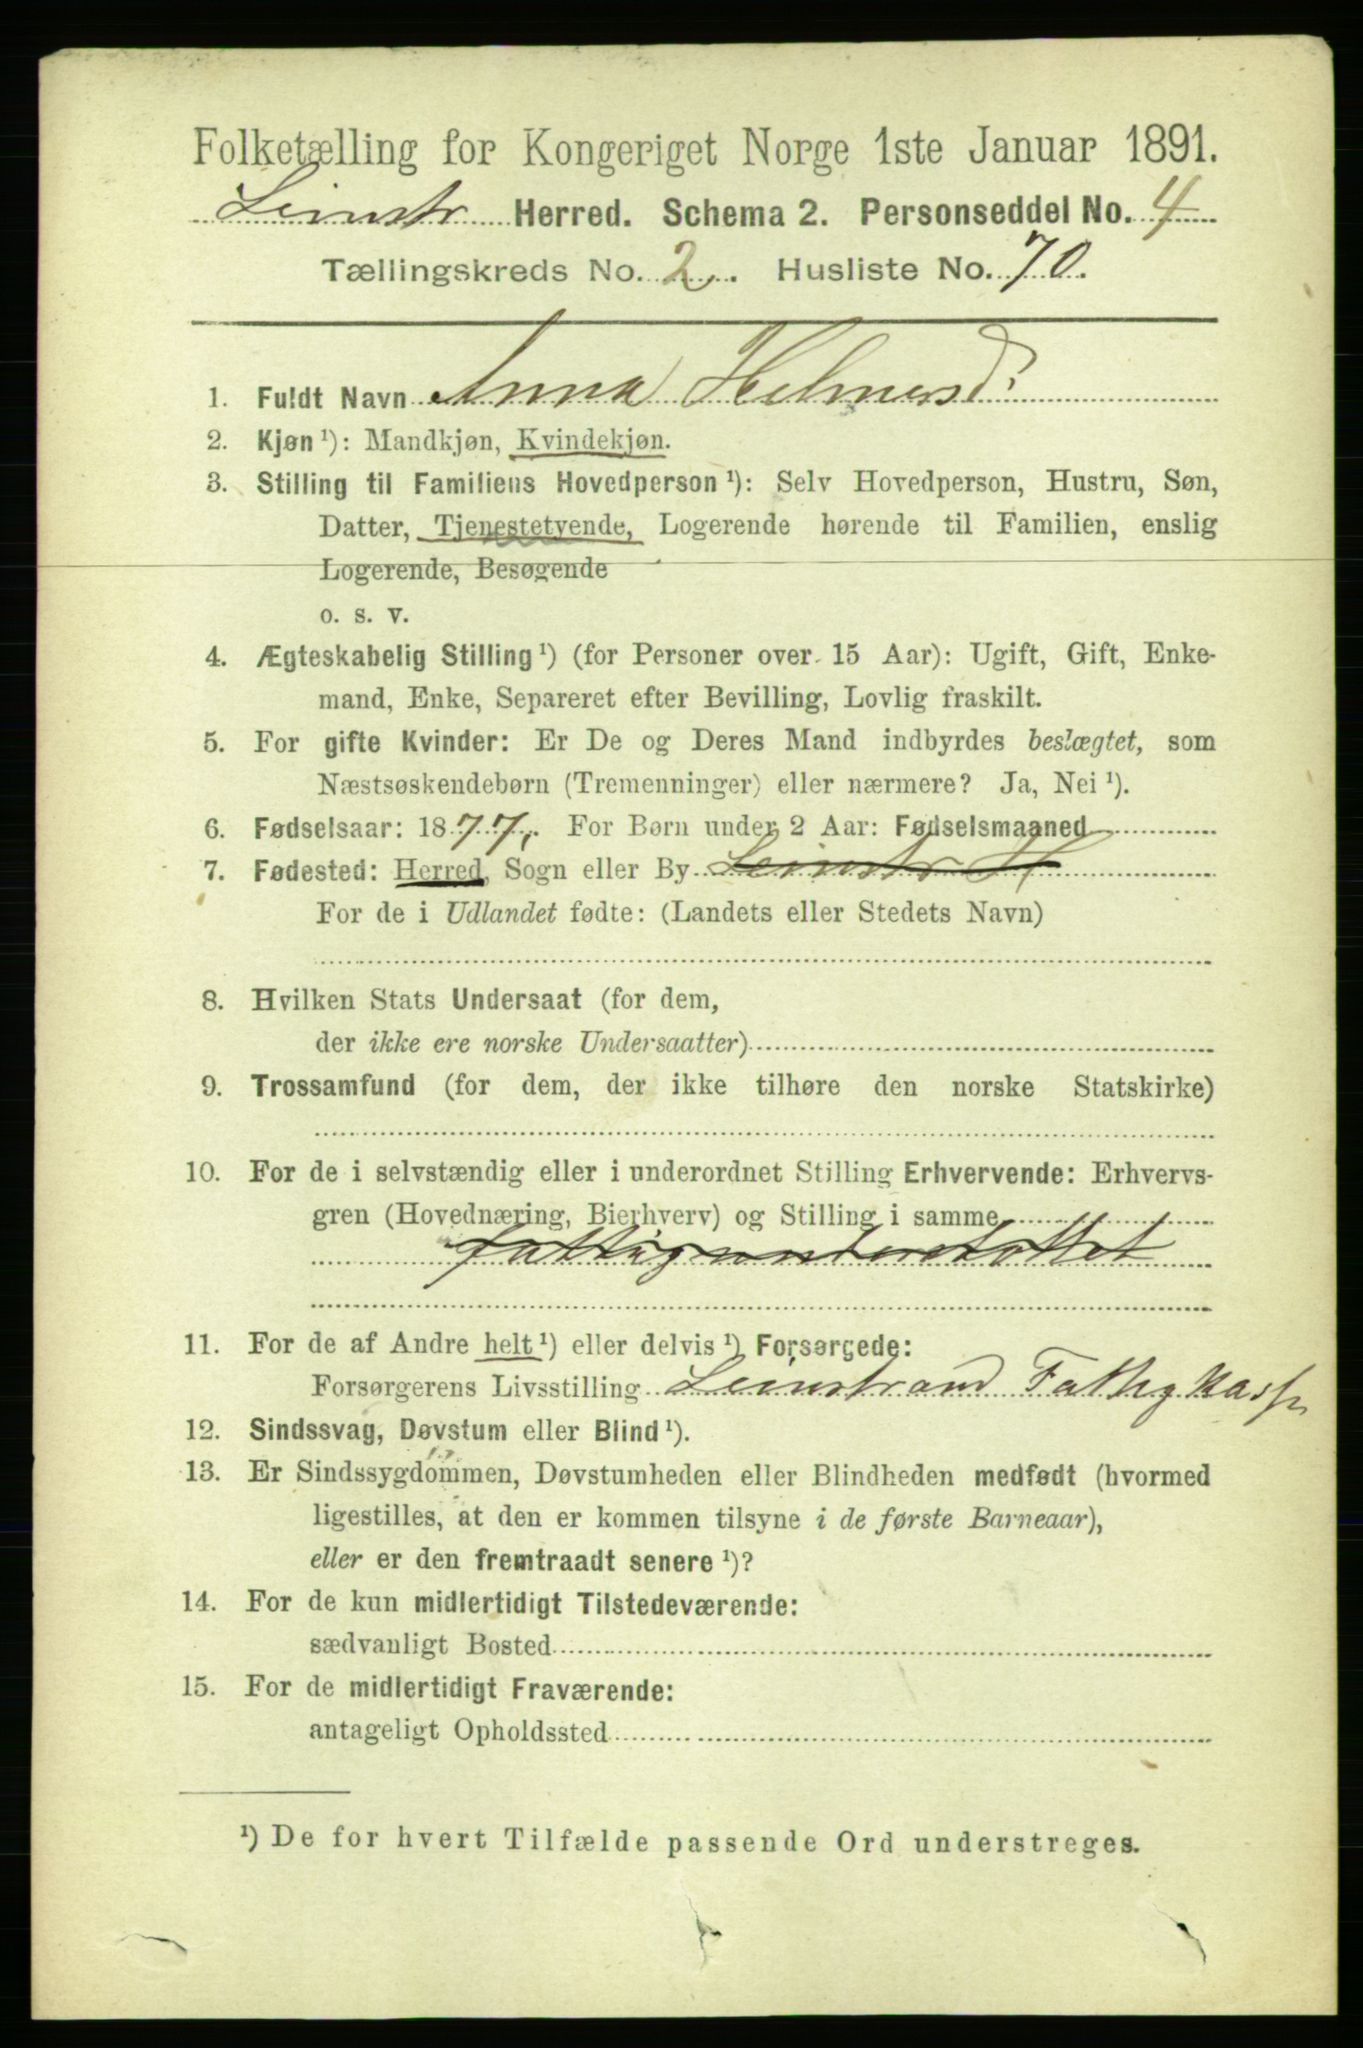 Folketælling for Kongeriget Norge 1ste Januar 1891.
Leinstr Herred. Schema 2. Personseddel No. 4
Tællingskreds No. 2. Husliste No. 70.
1. Fuldt Navn Anna Helmersd.
2. Kjøn ¹): Mandkjøn, Kvindekjøn.
3. Stilling til Familiens Hovedperson ¹): Selv Hovedperson, Hustru, Søn,
Datter, Tjenestetyende, Logerende hørende til Familien, enslig
Logerende, Besøgende
o. s. v.
4. Ægteskabelig Stilling ¹) (for Personer over 15 Aar): Ugift, Gift, Enke-
mand, Enke, Separeret efter Bevilling, Lovlig fraskilt.
5. For gifte Kvinder: Er De og Deres Mand indbyrdes beslægtet, som
Næstsøskendebørn (Tremenninger) eller nærmere? Ja, Nei ¹).
6. Fødselsaar: 1877, For Børn under 2 Aar: Fødselsmaaned
7. Fødested: Herred, Sogn eller By Leinstr H
For de i Udlandet fødte: (Landets eller Stedets Navn)
8. Hvilken Stats Undersaat (for dem,
der ikke ere norske Undersaatter)
9. Trossamfund (for dem, der ikke tilhøre den norske Statskirke)
10. For de i selvstændig eller i underordnet Stilling Erhvervende: Erhvervs-
gren (Hovednæring, Bierhverv) og Stilling i samme
fattigunderstøttet
11. For de af Andre helt ¹) eller delvis ¹) Forsørgede:
Forsørgerens Livsstilling Leinstrand Fattigkasse
12. Sindssvag, Døvstum eller Blind ¹).
13. Er Sindssygdommen, Døvstumheden eller Blindheden medfødt (hvormed
ligestilles, at den er kommen tilsyne i de første Barneaar),
eller er den fremtraadt senere ¹)?
14. For de kun midlertidigt Tilstedeværende:
sædvanligt Bosted
15. For de midlertidigt Fraværende:
antageligt Opholdssted
¹) De for hvert Tilfælde passende Ord understreges.